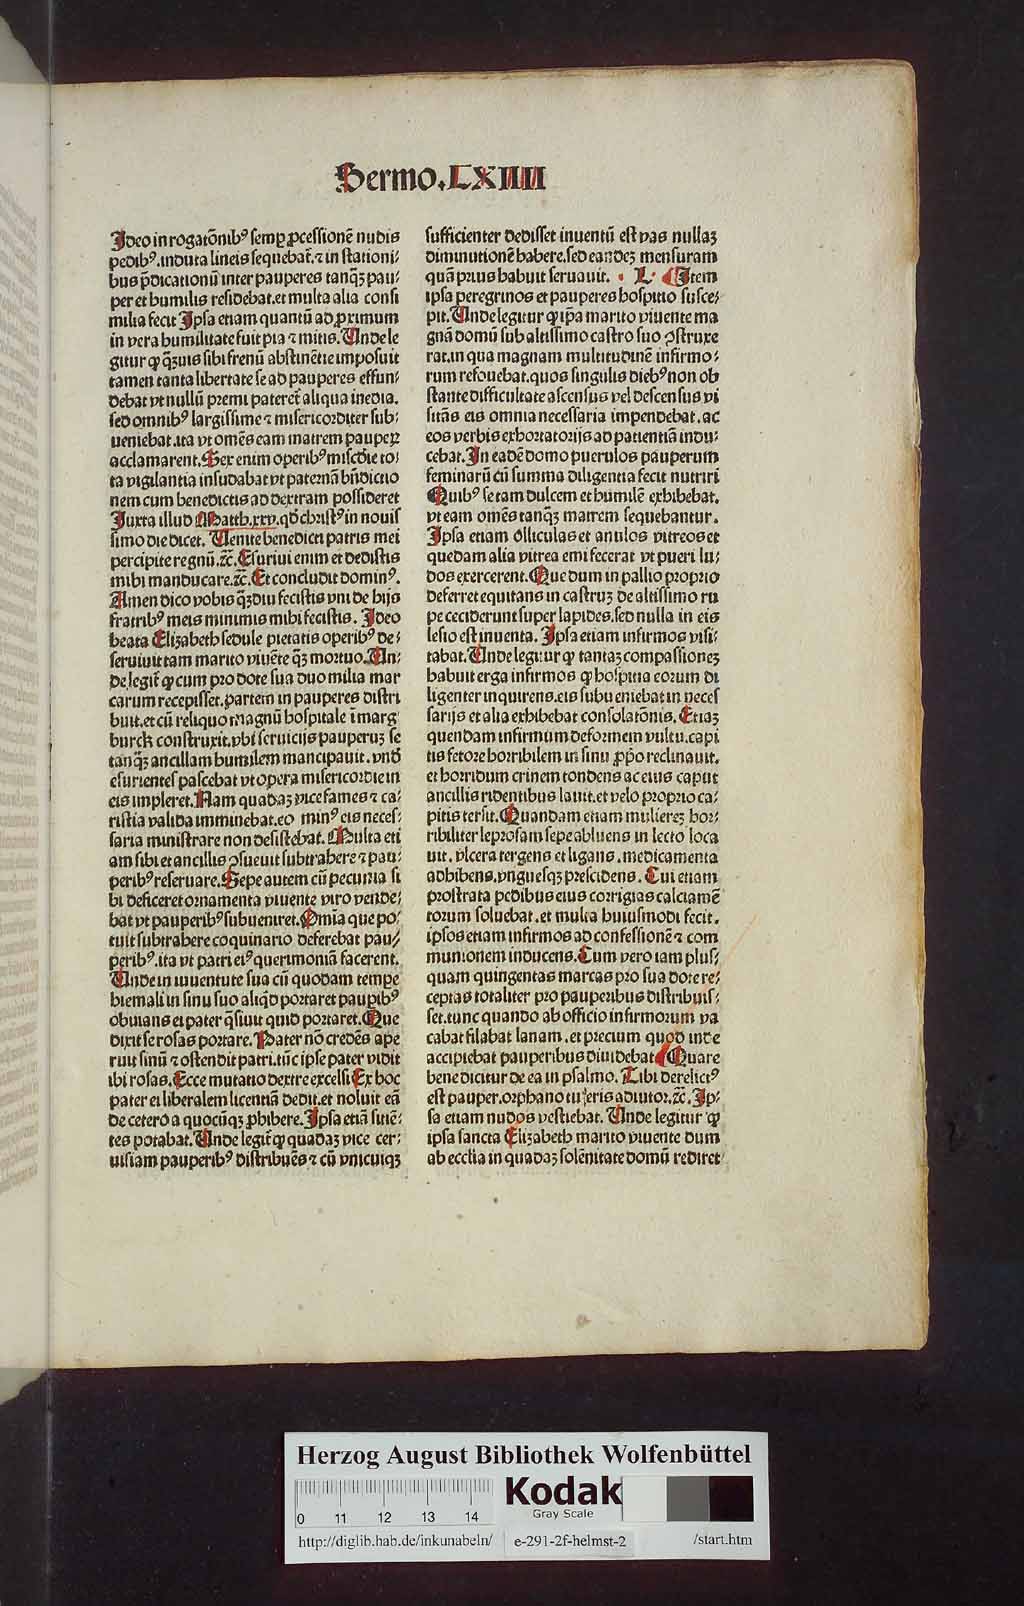 Sermo.LXIIII
Ideo in rogatõnibꝰ semꝑ ꝓcessionẽ nudis
pedibꝰ.induta lineis sequebat᷑.⁊ in stationi⸗
bus p̃dicationũ inter pauperes tanqꝫ pau⸗
per et humilis residebat.et multa alia consi
milia fecit Ipsa etiam quantũ ad ꝓximum
in vera humilitate fuit pia ⁊ mitis. Unde le
gitur ꝙ qꝫuis sibi frenũ abstinẽtie imposuit
tamen tanta libertate se ad pauperes effun⸗
debat vt nullũ premi pateret᷑ aliqua inedia.
sed omnibꝰ largissime ⁊ misericorditer sub⸗
ueniebat.ita vt omẽs eam matrem pauperꝝ
acclamarent.Sex enim operibꝰ miscđie to⸗
ta vigilantia insudabat vt paternã bñdictio
nem cum benedictis ad dextram possideret
Iuxta illud Matth.xxv.qđ christꝰ in nouis
simo die dicet. Uenite benedicti patris mei
percipite regnũ.⁊c̃.Esuriui enim et dedistis
mihi manducare.⁊c̃.Et concludit dominꝰ.
Amen dico vobis qꝫdiu fecistis vni de hijs
fratribꝰ meis minimis mihi fecistis. Ideo
beata Elizabeth sedule pietatis operibꝰ de⸗
seruiuit tam marito viuẽte qꝫ mortuo.Un⸗
de legit᷑ ꝙ cum pro dote sua duo milia mar
carum recepisset.partem in pauperes distri
buit.et cũ reliquo magnũ hospitale ĩ marg
burck construxit.vbi seruicijs pauperuꝫ se
tanqꝫ ancillam humilem mancipauit. vnđ
esurientes pascebat vt opera misericordie in
eis impleret.Nam quadaꝫ vice fames ⁊ ca⸗
ristia valida imminebat.eo minꝰ eis neces⸗
saria ministrare non desistebat. Multa eti
am sibi et ancillis ꝯsueuit subtrahere ⁊ pau⸗
peribꝰ reseruare.Sepe autem cũ pecunia si
bi deficeret ornamenta viuente viro vende⸗
bat vt pauperibꝰ subueniret.Om̃ia que po⸗
tuit subtrahere coquinario deferebat pau⸗
peribꝰ.ita vt patri eiꝰ querimoniã facerent.
Unde in iuuentute sua cũ quodam tempe
hiemali in sinu suo aliqđ portaret pauꝑibꝰ
obuians ei pater q̃siuit quid portaret.Que
dixit se rosas portare. Pater nõ credẽs ape
ruit sinũ ⁊ ostendit patri.tũc ipse pater vidit
ibi rosas.Ecce mutatio dextre excelsi Ex hoc
pater ei liberalem licentiã dedit.et noluit eã
de cetero a quocũqꝫ ꝓhibere.Ipsa etiã sitiẽ⸗
tes potabat.Unde legit᷑ ꝙ quadaꝫ vice cer⸗
uisiam pauperibꝰ distribuẽs ⁊ cũ vnicuiqꝫ
sufficienter dedisset inuentũ est vas nullaꝫ
diminutionẽ habere.sed eandeꝫ mensuram
quã prius habuit seruauit. L Item
ipsa peregrinos et pauperes hospitio susce⸗
pit.Unde legitur ꝙ ip̃a marito viuente ma
gnã domũ sub altissimo castro suo ꝯstruxe
rat.in qua magnam multitudinẽ infirmo⸗
rum refouebat.quos singulis diebꝰ non ob
stante difficultate ascensus vel descensus vi
sitãs eis omnia necessaria impendebat.ac
eos verbis exhortatorijs ad patientiã indu⸗
cebat.In eadẽ domo puerulos pauperum
feminarũ cũ summa diligentia fecit nutriri
Quibꝰ se tam dulcem et humilẽ exhibebat.
vt eam omẽs tanqꝫ matrem sequebantur.
Ipsa etiam olliculas et anulos vitreos et
quedam alia vitrea emi fecerat vt pueri lu⸗
dos exercerent.Que dum in pallio proprio
deferret equitans in castruꝫ de altissimo ru
pe ceciderunt super lapides.sed nulla in eis
lesio est inuenta. Ipsa etiam infirmos visi⸗
tabat.Unde legitur ꝙ tantaꝫ compassioneꝫ
habuit erga infirmos ꝙ hospitia eorum di
ligenter inquirens.eis subueniebat in neces
sarijs et alia exhibebat consolatõnis.Etiaꝫ
quendam infirmum deformem vultu.capi
tis fetore horribilem in sinu ꝓp̃o reclinauit.
et horridum crinem tondens ac eius caput
ancillis ridentibus lauit.et velo proprio ca⸗
pitis tersit.Quandam etiam muliereꝫ hor⸗
ribiliter leprosam sepe abluens in lecto loca
uit. vlcera tergens et ligans.medicamenta
adhibens.vnguesqꝫ prescidens. Cui etiam
prostrata pedibus eius corrigias calciamẽ
torum soluebat.et multa huiusmodi fecit.
ipsos etiam infirmos ad confessionẽ ⁊ com
munionem inducens.Cum vero iam plus⸗
quam quingentas marcas pro sua dote re⸗
ceptas totaliter pro pauperibus distribuis⸗
set.tunc quando ab officio infirmorum va
cabat filabat lanam.et precium quod inde
accipiebat pauperibus diuidebat Quare
benedicitur de ea in psalmo. Tibi derelictꝰ
est pauper.orphano tu eris adiutor.⁊c̃.Ip⸗
sa etiam nudos vestiebat. Unde legitur ꝙ
ipsa sancta Elizabeth marito viuente dum
ab eccl̃ia in quadaꝫ solẽnitate domũ rediret
Herzog August Bibliothek Wolfenbüttel
0 11 12 13 14
Kodak
Gray Scale
http://diglib.hab.de/inkunabeln/ e-291-2f-helmst-2 /start.htm